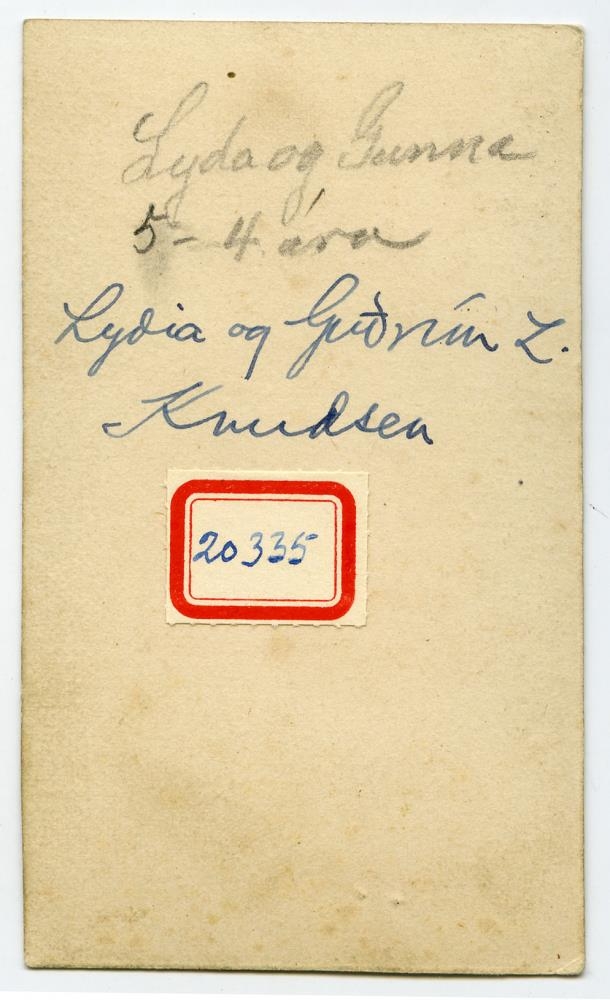 Lyda og Gunna
5-4 ára
Lydia og Guðrún L.
Knudsen
20335